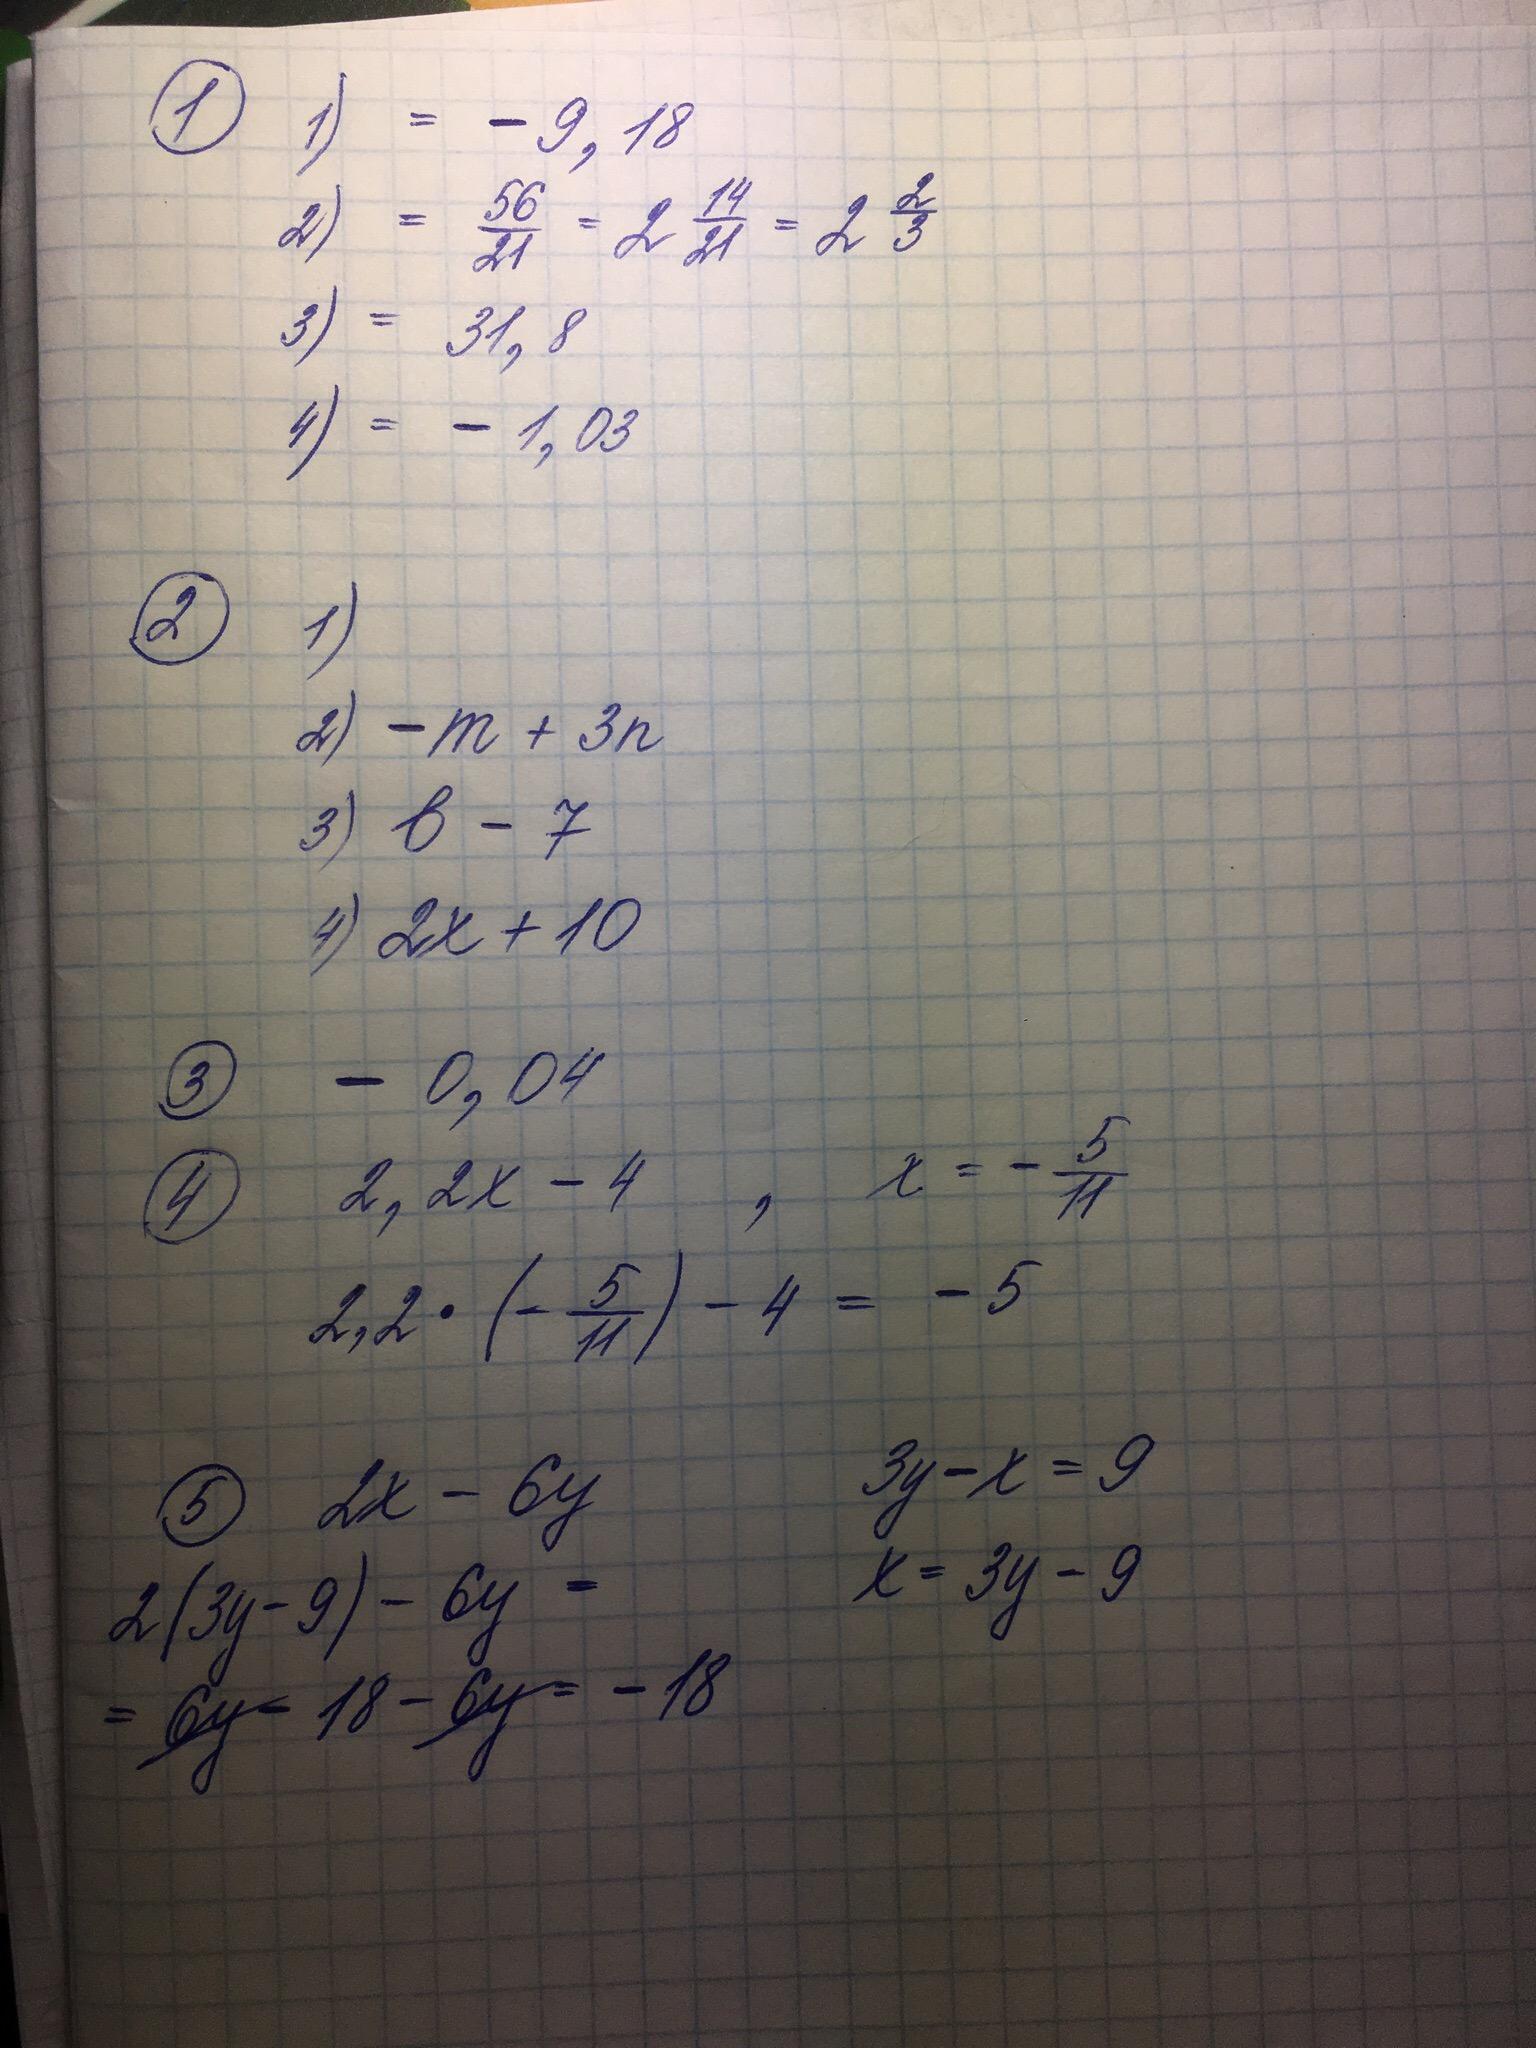 1 1) = - 9,18
2) = 56/21 = 2 14/21 = 2 2/3
3) = 31,8
4) = - 1,03
2 1)
2) - m + 3n
3) b - 7
4) 2x + 10
3 - 0,04
4 2,2x - 4 , x = - 5/11
2,2 · (- 5/11) - 4 = - 5
5 2x - 6y 3y - x = 9
2(3y - 9) - 6y = x = 3y - 9
= 6y - 18 - 6y = - 18